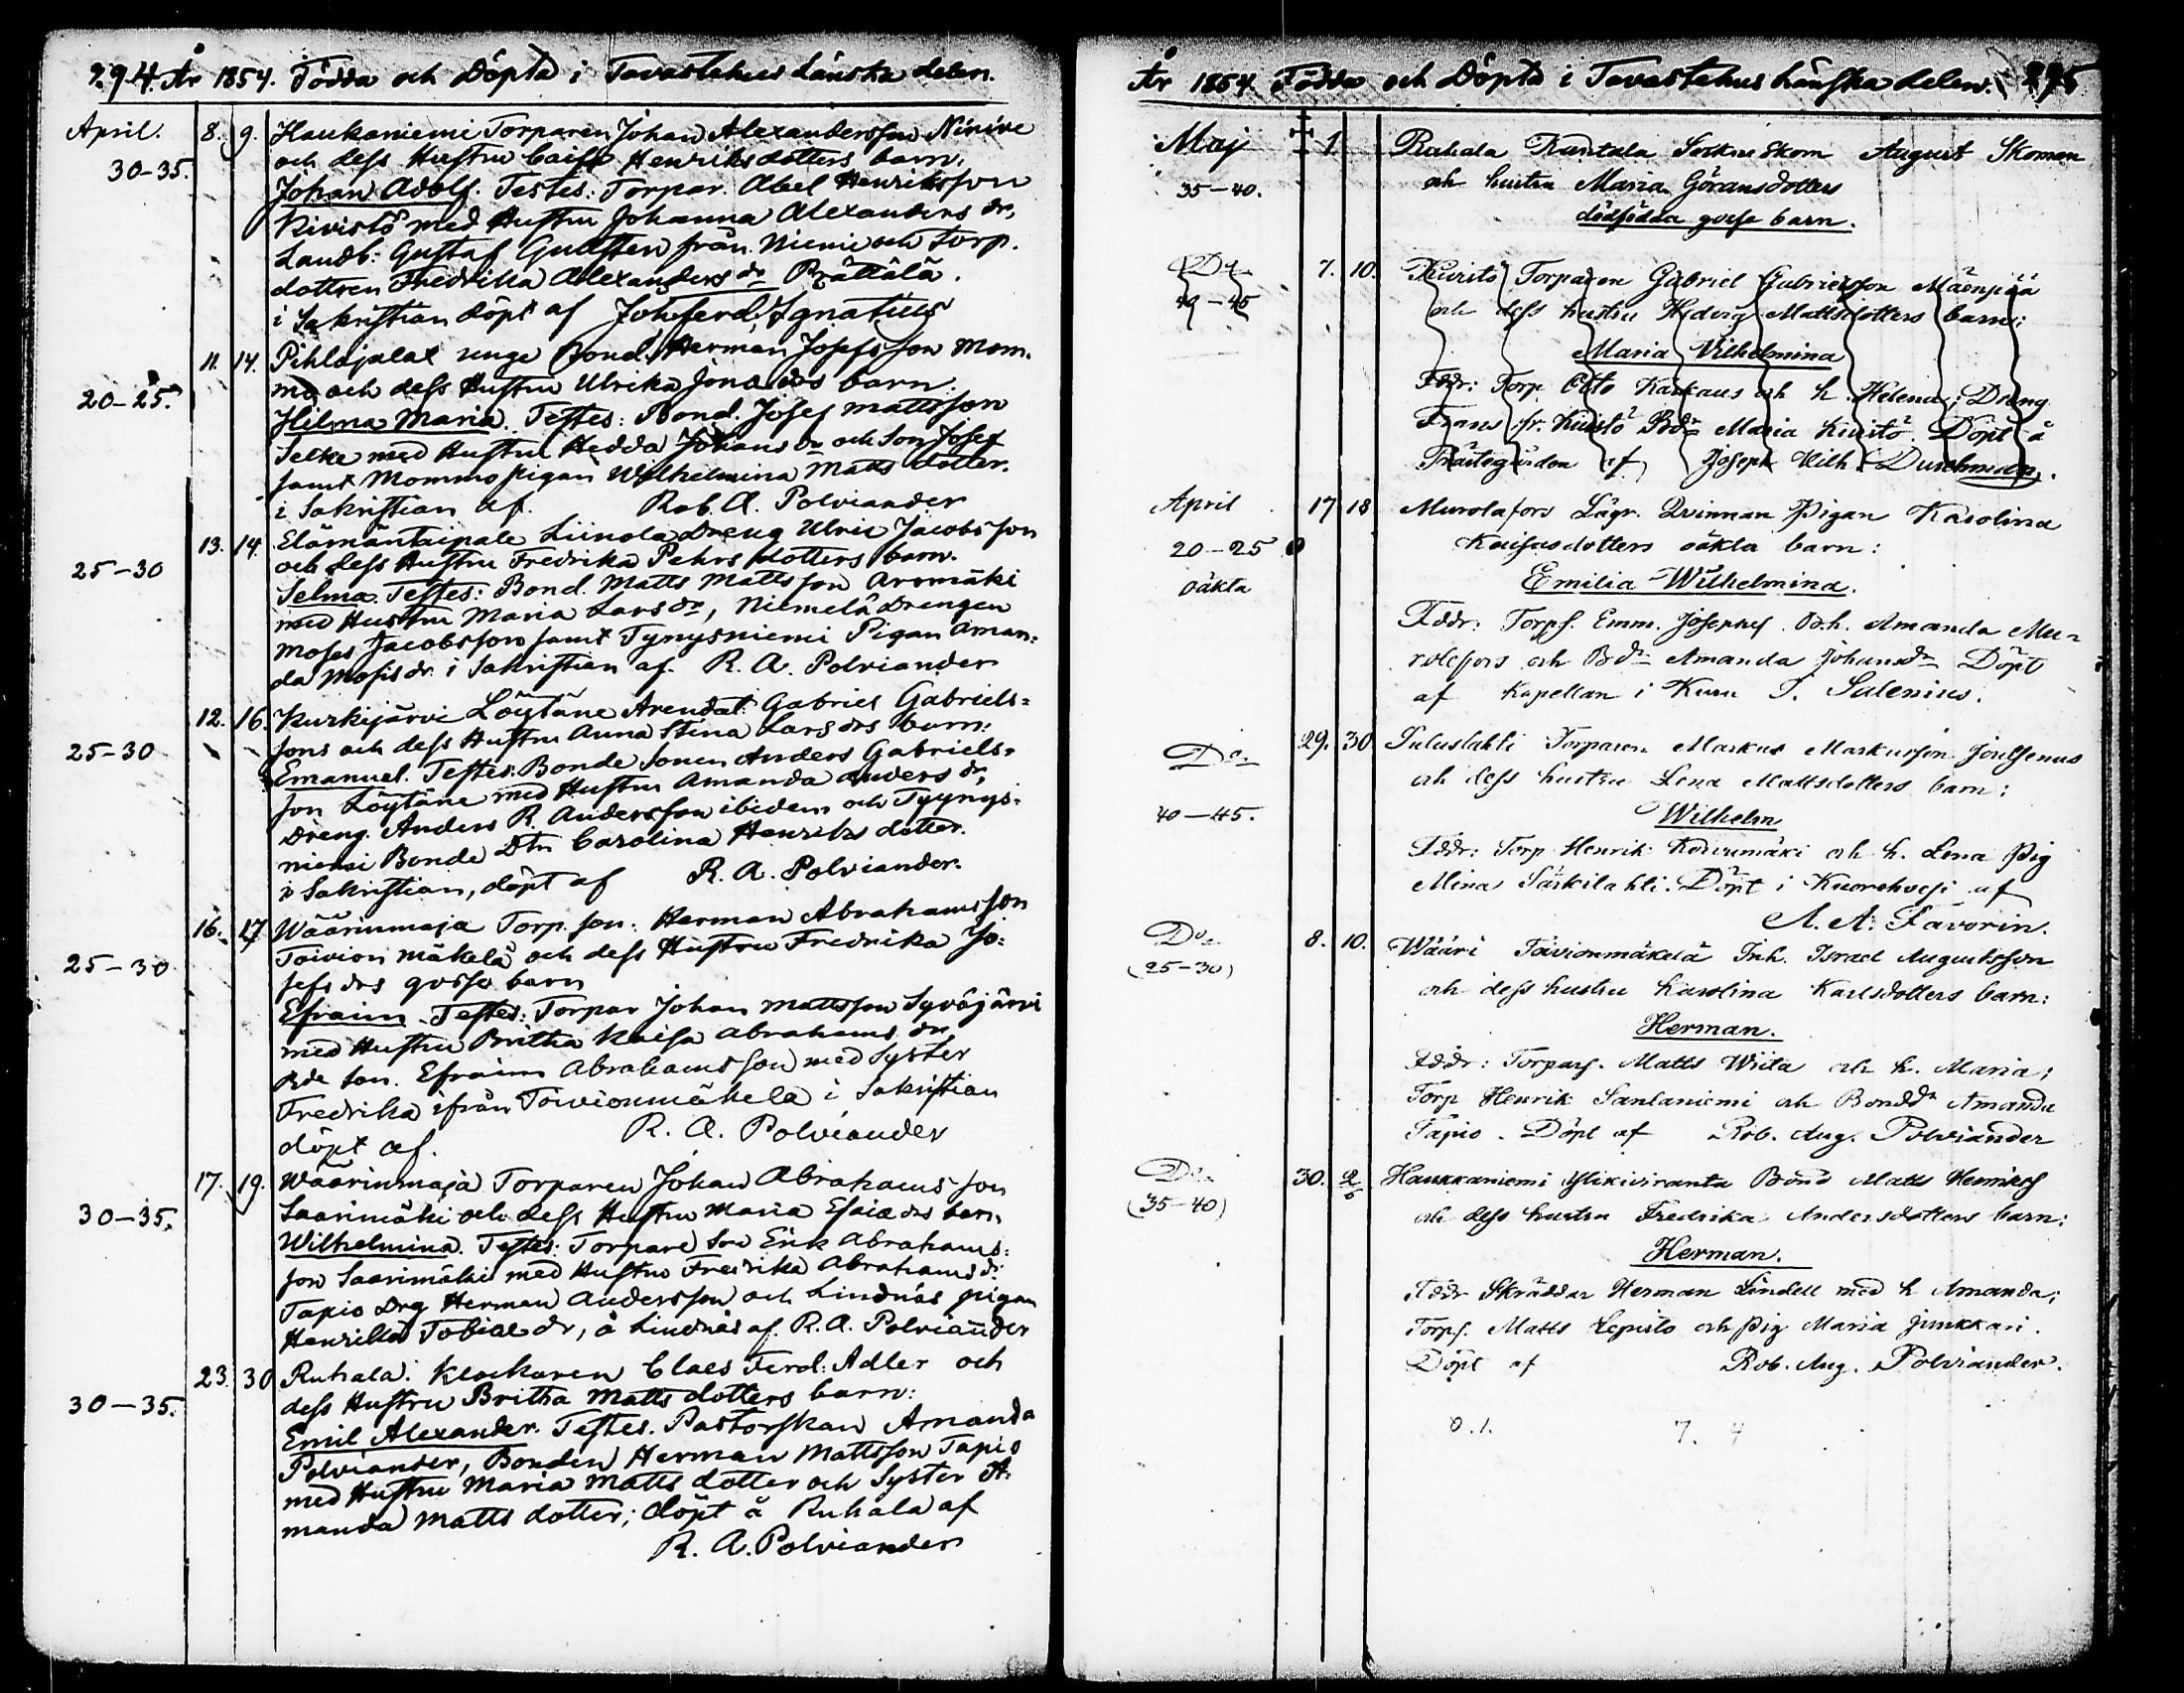 294. År 1854. Födda och Döpta i Tavastehus Länska delen.
April. 8. 9. Haukaniemi Torparen Johan Alexandersson Ninive
30-35. och dess Hustru Caisa Henriksdotters barn.
Johan Adolf. Testes: Torpar. Abel Henriksson
Kivistö med Hustru Johanna Alexanders dr,
Landb: Gustaf Gustafson från Niemi och Torp.
dottren Fredrika Alexanders dr Prättälä.
i Sakristian döpt af Joh. ferd. Ignatius
11. 14. Pihlajalax unge Bond. Herman Josefsson Mom-
mo och dess Hustru Ulrika Jona drs barn.
20-25. Hilma Maria. Testes: Bond. Josef Mattsson
Selke med Hustru Hedda Johans dr och Son Josef
samt Mommo pigan Wilhelmina Matts dotter.
i Sakristian af. Rob. A. Polviander
13. 14. Elämäntaipale Liinola Dreng Ulric Jacobsson
25-30 och dess Hustru Fredrika Pehrs dotters barn.
Selma. Testes: Bond. Matts Mattsson Aromäki
med Hustru Maria Lars dr, Niemelä Drengen
Moses Jacobsson samt Tynysniemi Pigan Aman-
da Mosis dr. i Sakristian af. R. A. Polviander
12. 16. Kurkijärvi Löytäne Arendat: Gabriel Gabriels-
25-30 sons och dess Hustru Anna Stina Lars drs barn:
Emanuel. Testes: Bonde Sonen Anders Gabriels-
son Löytäne med Hustru Amanda Anders dr,
Dreng. Anders R. Andersson ibidem och Tyynys-
niemi Bonde Dtr Carolina Henriks dotter.
i Sakristian, döpt af R. A. Polviander.
16. 17 Wäärinmaja Torp. son: Herman Abrahamsson
25-30 Toivion mäkelä och dess Hustru Fredrika Jo-
sefs drs gosse barn
Efraim. Testes: Torpar Johan Mattsson Syväjärvi
med Hustru Britha Kaisa Abrahams dr
Bde son. Efraim Abrahamsson med Syster
Fredrika ifrån Toivionmäkelä i Sakristian
döpt af. R. A. Polviander
17. 19. Wäärinmaja Torparen Johan Abrahamsson
30-35. Saarimäki och dess Hustru Maria Esaiæ drs barn
Wilhelmina. Testes: Torpare Son Erik Abrahams-
son Saarimäki med Hustru Fredrika Abrahams dr
Tapio Drg Herman Andersson och Lindnäs pigan
Henrika Tobiæ dr, å Lindnäs af. R. A. Polviander
23. 30 Ruhala. Klockaren Claes Ferd: Adler och
30-35. dess Hustru Britha Matts dotters barn:
Emil Alexander. Testes. Pastorskan Amanda
Polviander, Bonden Herman Mattsson Tapio
med Hustru Maria Matts dotter och Syster A-
manda Matts dotter; döpt å Ruhala af
R. A. Polviander
År 1854. Födda och Döpta i Tavastehus länska delen. 295
Maj 1. Ruhala Kuntala Socknesk om August Skoman
35-40. och hustru Maria Göransdotters
dödfödda gosse barn.
Do 7. 10. Kivistö Torparen Gabriel Gabrielsson Mäenpää
och dess hustru Hedvig Mattsdotters barn:
Maria Wilhelmina
Fddr: Torp Otto Kaukaus och h. Helena; Dreng
Frans fr. Kivistö Bdr Maria Kivistö. Döpt å
Prästegården af Joseph Wilh. Durchman.
April 17 18 Murolefors Lägr. Qvinnan Pigan Karolina
20-25 Kaisasdotters oäkta barn:
oäkta Emilia Wilhelmina.
Fddr: Torps. Emm. Josephss. och h. Amanda Mu-
rolefors och Bdr Amanda Johansdr Döpt
af Kapellan i Kuru I. Salenius.
Do 29. 30 Suluslahti Torparen Markus Markusson Joutsenus
och dess hustru Lena Mattsdotters barn:
40-45. Wilhelm
Fddr: Torp Henrik Kourimäki och h. Lena Pig
Mina Särkilahti. Döpt i Kuorehvesi af
A. A. Favorin.
Do 8. 10. Wääri Toivionmäkelä Inh. Israel Augustsson
(25-30) och dess hustru Karolina Karlsdotters barn:
Herman.
Fddr: Torpars. Matts Wiita och h. Maria;
Torp Henrik Santaniemi och Bonddr Amanda
Tapio. Döpt af Rob. Aug. Polviander
Do 30. 2/5 Haukkaniemi Ylikiviranta Bond Matts Henriks
(35-40) och dess hustru Fredrika Andersdotters barn:
Herman.
Fddr Skräddar Herman Lindell med h Amanda;
Torps. Matts Lepistö och pig Maria Junkkari.
Döpt af Rob. Aug. Polviander.
0.1. 7. 4